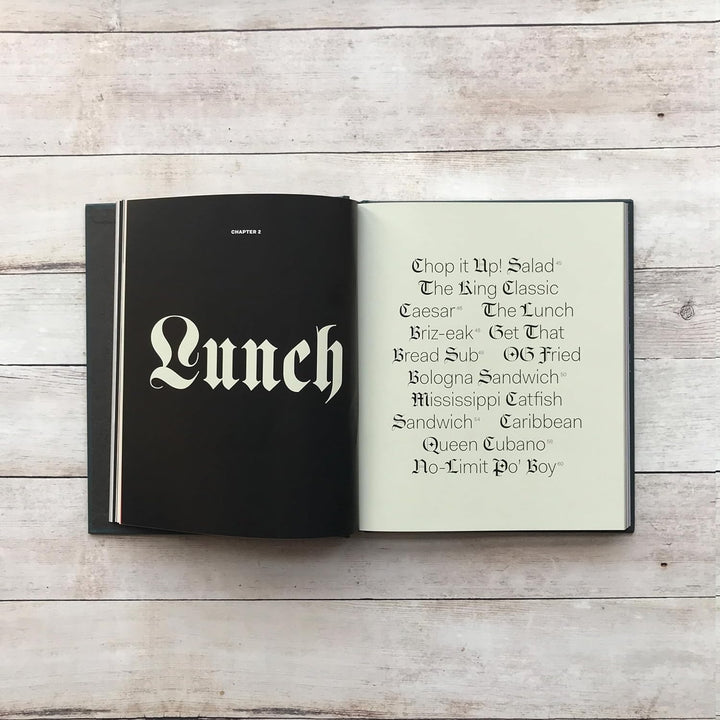 CHAPTER 2
Lunch
Chop it Up! Salad 45
The King Classic
Caesar 46 The Lunch
Briz-eak 48 Get That
Bread Sub 49 OG Fried
Bologna Sandwich 50
Mississippi Catfish
Sandwich 54 Caribbean
Queen Cubano 56
No-Limit Po' Boy 60